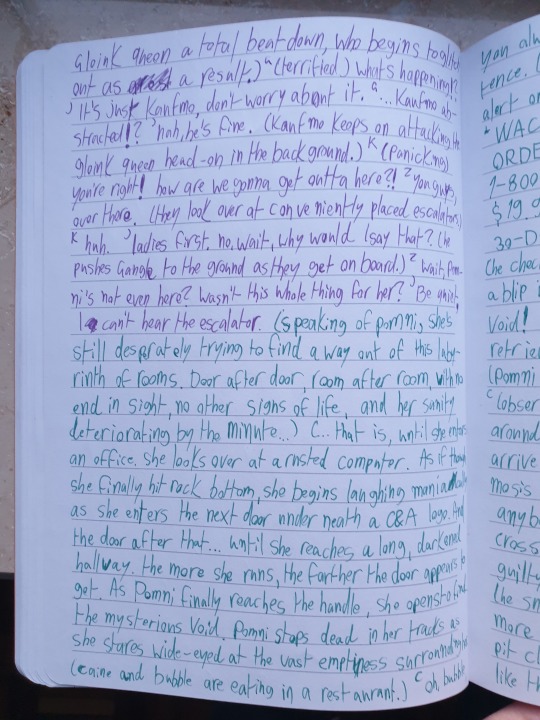 gloink queen a total beatdown, who begins to glitch
out as a result.) G (terrified) what's happening!?
J It's just Kaufmo, don't worry about it. G ...Kaufmo ab-
stracted!? J nah, he's fine. (Kaufmo keeps on attacking the
gloink queen head-on in the background.) K (Panicking)
you're right! how are we gonna get outta here?! Z you guys,
over there. (they look over at conveniently placed escalators)
K huh. J ladies first. no, wait, why would I say that? (he
pushes Gangle to the ground as they get on board.) Z wait, Pom-
ni's not even here? Wasn't this whole thing for her? J Be quiet,
I can't hear the escalator. (speaking of pomni, she's
still desperately trying to find a way out of this laby-
rinth of rooms. Door after door, room after room, with no
end in sight, no other signs of life, and her sanity
deteriorating by the minute...) (... that is, until she enters
an office. she looks over at a rusted computer. As if though
she finally hit rock bottom, she begins laughing maniacally
as she enters the next door underneath a C&A logo. And
the door after that... until she reaches a long, darkened
hallway. the more she runs, the farther the door appears to
get. As Pomni finally reaches the handle, she opens to find
the mysterious Void. Pomni stops dead in her tracks as
she stares wide-eyed at the vast emptiness surrounding her
(caine and bubble are eating in a restaurant.) C oh, bubble
you alw
tence. (
alert o
WAC
ORDE
1-800
$19.9
30-D
(he chec
a blip i
Void!
retrie
(Pomni
C (obser
around
arrive
mosis
anyb
cross
guilty
(he sn
more
pit cl
like th